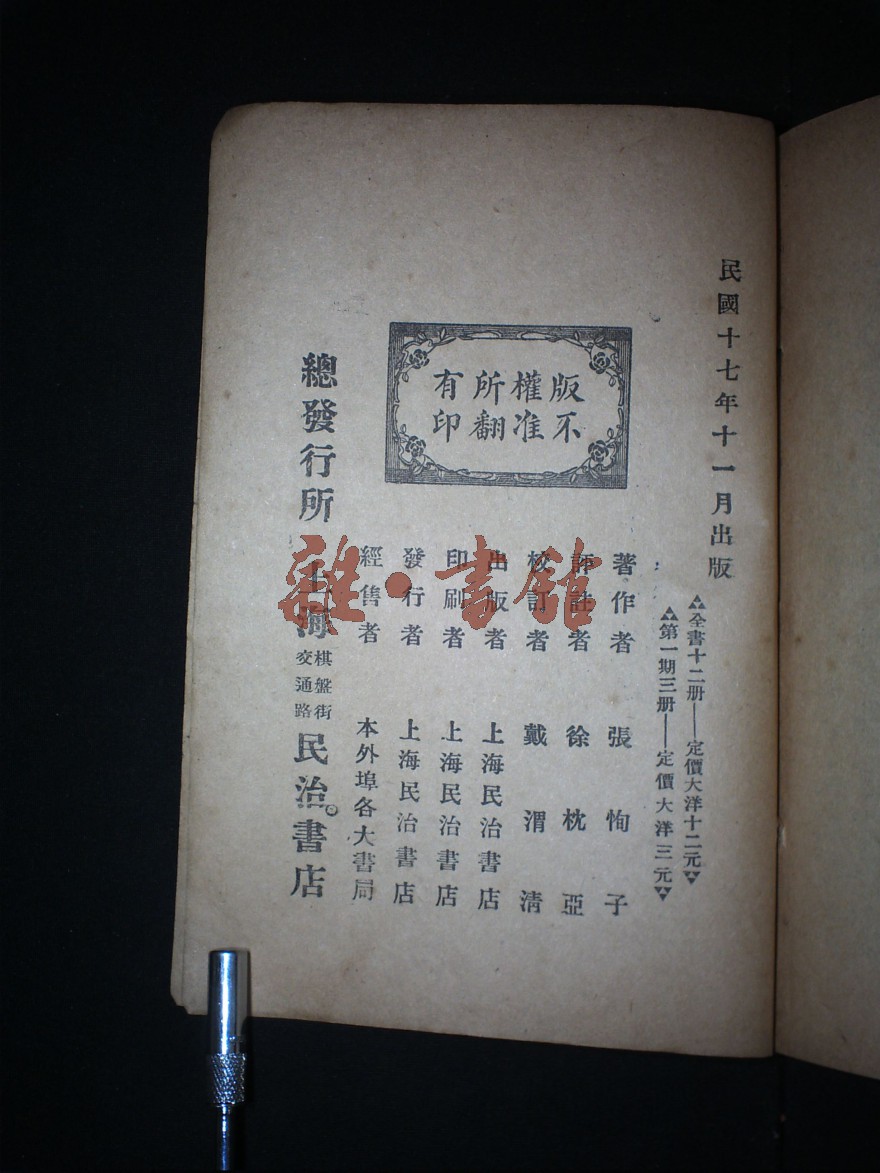 民國十七年十一月出版
全書十二册——定價大洋十二元
第一期三册——定價大洋三元
版權所有
不准翻印
著作者 張恂子
評註者 徐枕亞
校訂者 戴渭清
出版者 上海民治書店
印刷者 上海民治書店
發行者 上海民治書店
經售者 本外埠各大書局
總發行所 上海 棋盤街交通路 民治書店
雜·書館